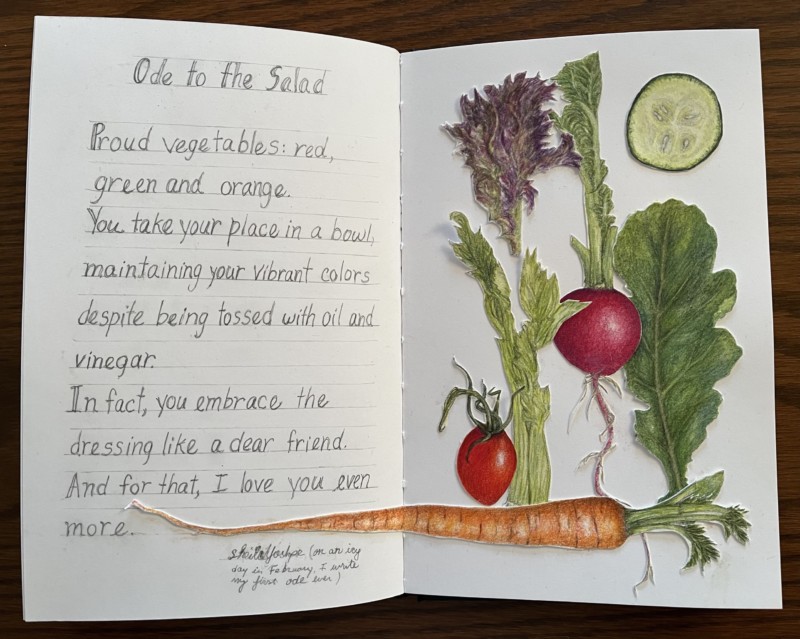 Ode to the Salad
Proud vegetables: red,
green and orange.
You take your place in a bowl,
maintaining your vibrant colors
despite being tossed with oil and
vinegar.
In fact, you embrace the
dressing like a dear friend.
And for that, I love you even
more.
(on an icy
day in February, I write
my first ode ever)